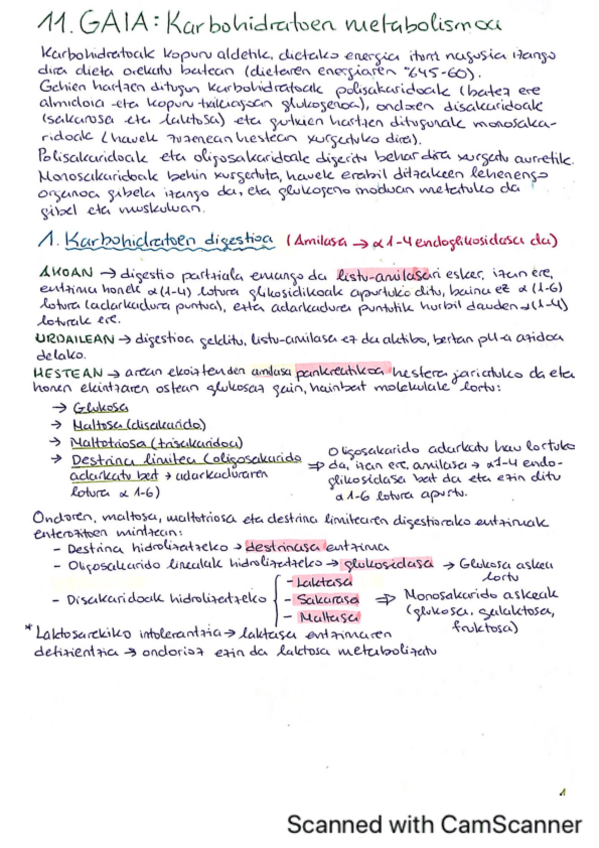 11. GAIA: Karbohidratoen metabolismoa
Karbohidratoak kopuru aldetik, dietako energia iturri nagusia izango
dira dieta orekatu batean (dietaren energiaren %45-60).
Gehien hartzen ditugun karbohidratoak polisakaridoak (batez ere
almidoia eta kopuru txikiagoan glukogenoa), ondoren disakaridoak
(sakarosa eta laktosa) eta gutxien hartzen ditugunak monosaka-
ridoak (hauek zuzenean hestean xurgatuko dira).
Polisakaridoak eta oligosakaridoak digeritu behar dira xurgatu aurretik.
Monosakaridoak behin xurgatuta, hauek erabil ditzakeen lehenengo
organoa gibela izango da, eta glukogeno moduan metatuko da
gibel eta muskuluan.
1. Karbohidratoen digestioa (Amilasa → α1-4 endoglikosidasa da)
AHOAN → digestio partziala emango da listu-amilasari esker, izan ere,
entzima honek α(1-4) lotura glikosidikoak apurtuko ditu, baina ez α(1-6)
lotura (adarkadura puntua), ezta adarkadura puntutik hurbil dauden α(1-4)
loturak ere.
URDAILEAN → digestioa gelditu, listu-amilasa ez da aktibo, bertan pH-a azidoa
delako.
HESTEAN → arean ekoizten den amilasa pankreatikoa hestera jariatuko da eta
honen ekintzaren ostean glukosaz gain, hainbat molekulak lortu:
→ Glukosa
→ Maltosa (disakarido)
→ Maltotriosa (trisakaridoa)
→ Destrina limitea (oligosakarido
adarkatu bat → adarkaduraren
lotura α 1-6)
⇒ Oligosakarido adarkatu hau lortuko
da, izan ere, amilasa → α1-4 endo-
glikosidasa bat da eta ezin ditu
α 1-6 lotura apurtu.
Ondoren, maltosa, maltotriosa eta destrina limitearen digestiorako entzimak
enterozitoen mintzean:
- Destrina hidrolizatzeko → destrinasa entzima
- Oligosakarido linealak hidrolizatzeko → glukosidasa → Glukosa askea
lortu
- Disakaridoak hidrolizatzeko
- Laktasa
- Sakarasa
- Maltasa
⇒ Monosakarido askeak
(glukosa, galaktosa,
fruktosa)
* Laktosarekiko intolerantzia → laktasa entzimaren
defizientzia → ondorioz ezin da laktosa metabolizatu
1
Scanned with CamScanner